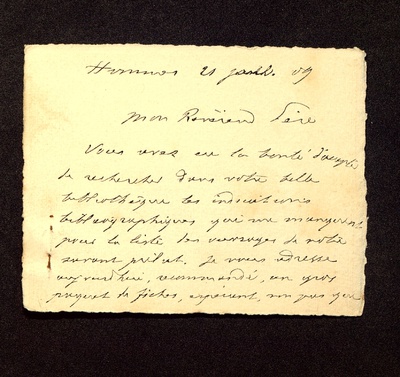 21 juill. 09
Mon Révérend Père
Vous avez eu la bonté d'accepter
de rechercher dans votre belle
bibliothèque les indications
bibliographiques qui me manquent
pour la liste des ouvrages de notre
savant prélat. Je vous adresse
aujourdhui, recommandé, un gros
paquet de fiches, espérant, non pas que